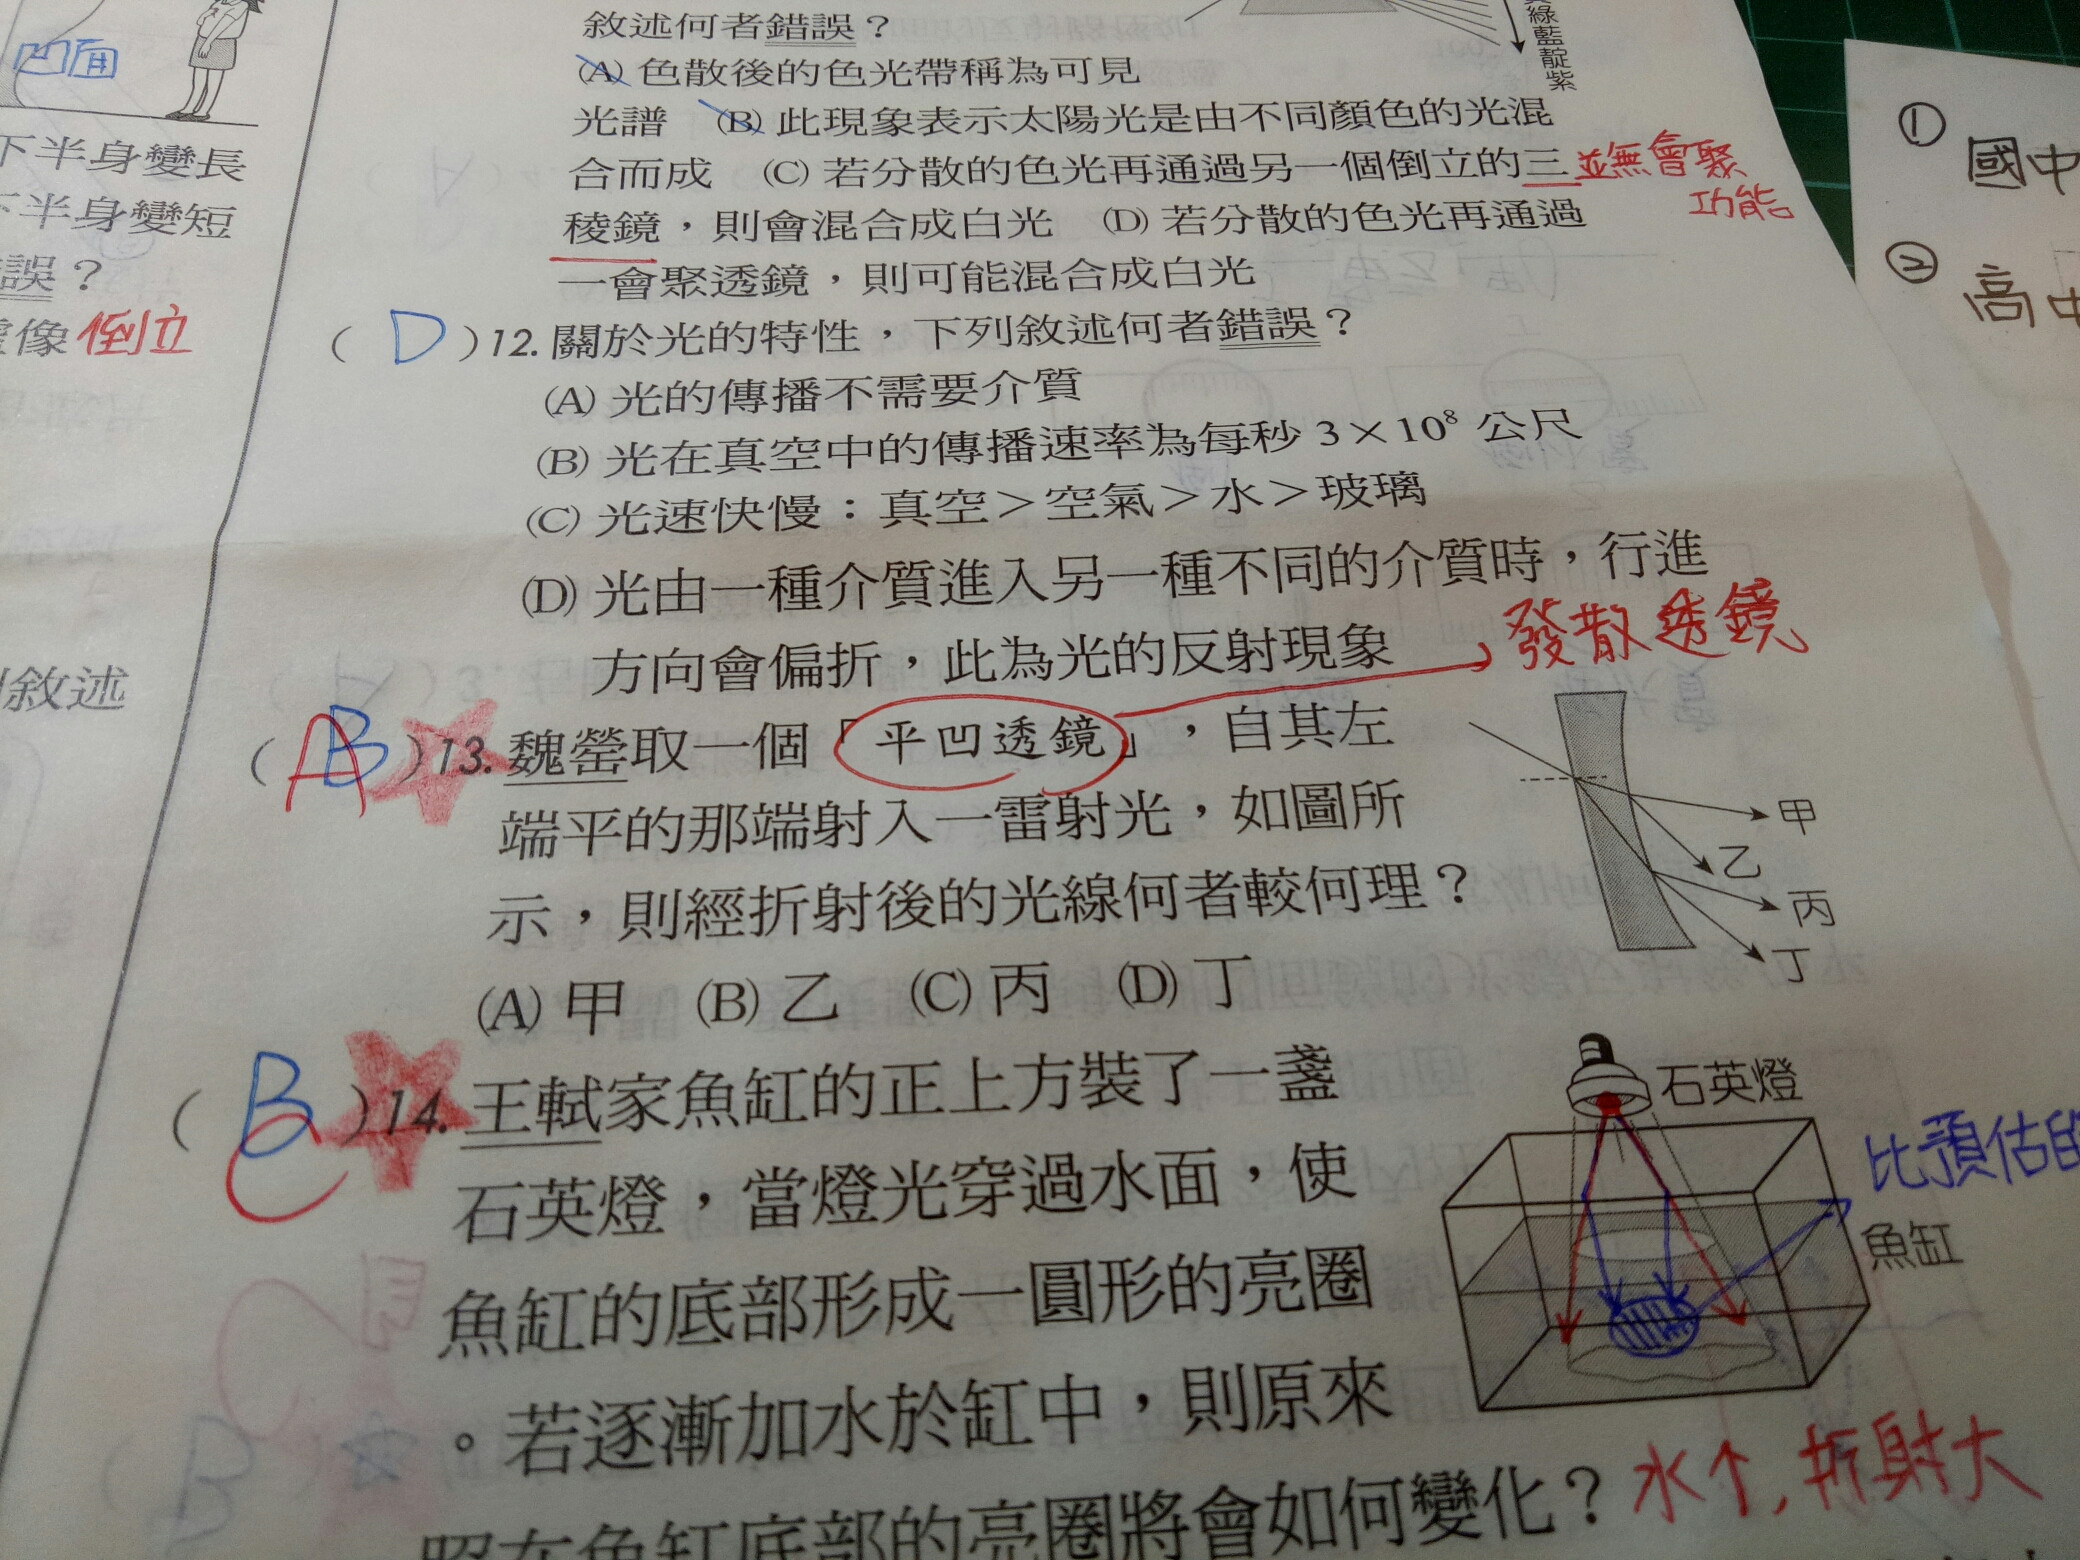 凹面
下半身變長
下半身變短
誤？
像 倒立
敘述
敘述何者錯誤？
綠藍靛紫
(A) 色散後的色光帶稱為可見
光譜 (B) 此現象表示太陽光是由不同顏色的光混
合而成 (C) 若分散的色光再通過另一個倒立的三
並無會聚
功能
稜鏡，則會混合成白光 (D) 若分散的色光再通過
一會聚透鏡，則可能混合成白光
( D )12. 關於光的特性，下列敘述何者錯誤？
(A) 光的傳播不需要介質
(B) 光在真空中的傳播速率為每秒 3×10⁸ 公尺
(C) 光速快慢：真空＞空氣＞水＞玻璃
(D) 光由一種介質進入另一種不同的介質時，行進
方向會偏折，此為光的反射現象
發散透鏡
( A B )13. 魏嫈取一個「平凹透鏡」，自其左
端平的那端射入一雷射光，如圖所
示，則經折射後的光線何者較何理？
(A) 甲 (B) 乙 (C) 丙 (D) 丁
甲
乙
丙
丁
( B C )14. 王軾家魚缸的正上方裝了一盞
石英燈，當燈光穿過水面，使
魚缸的底部形成一圓形的亮圈
。若逐漸加水於缸中，則原來
照在魚缸底部的亮圈將會如何變化？
水↑, 折射大
石英燈
比預估的
魚缸
① 國中
② 高中